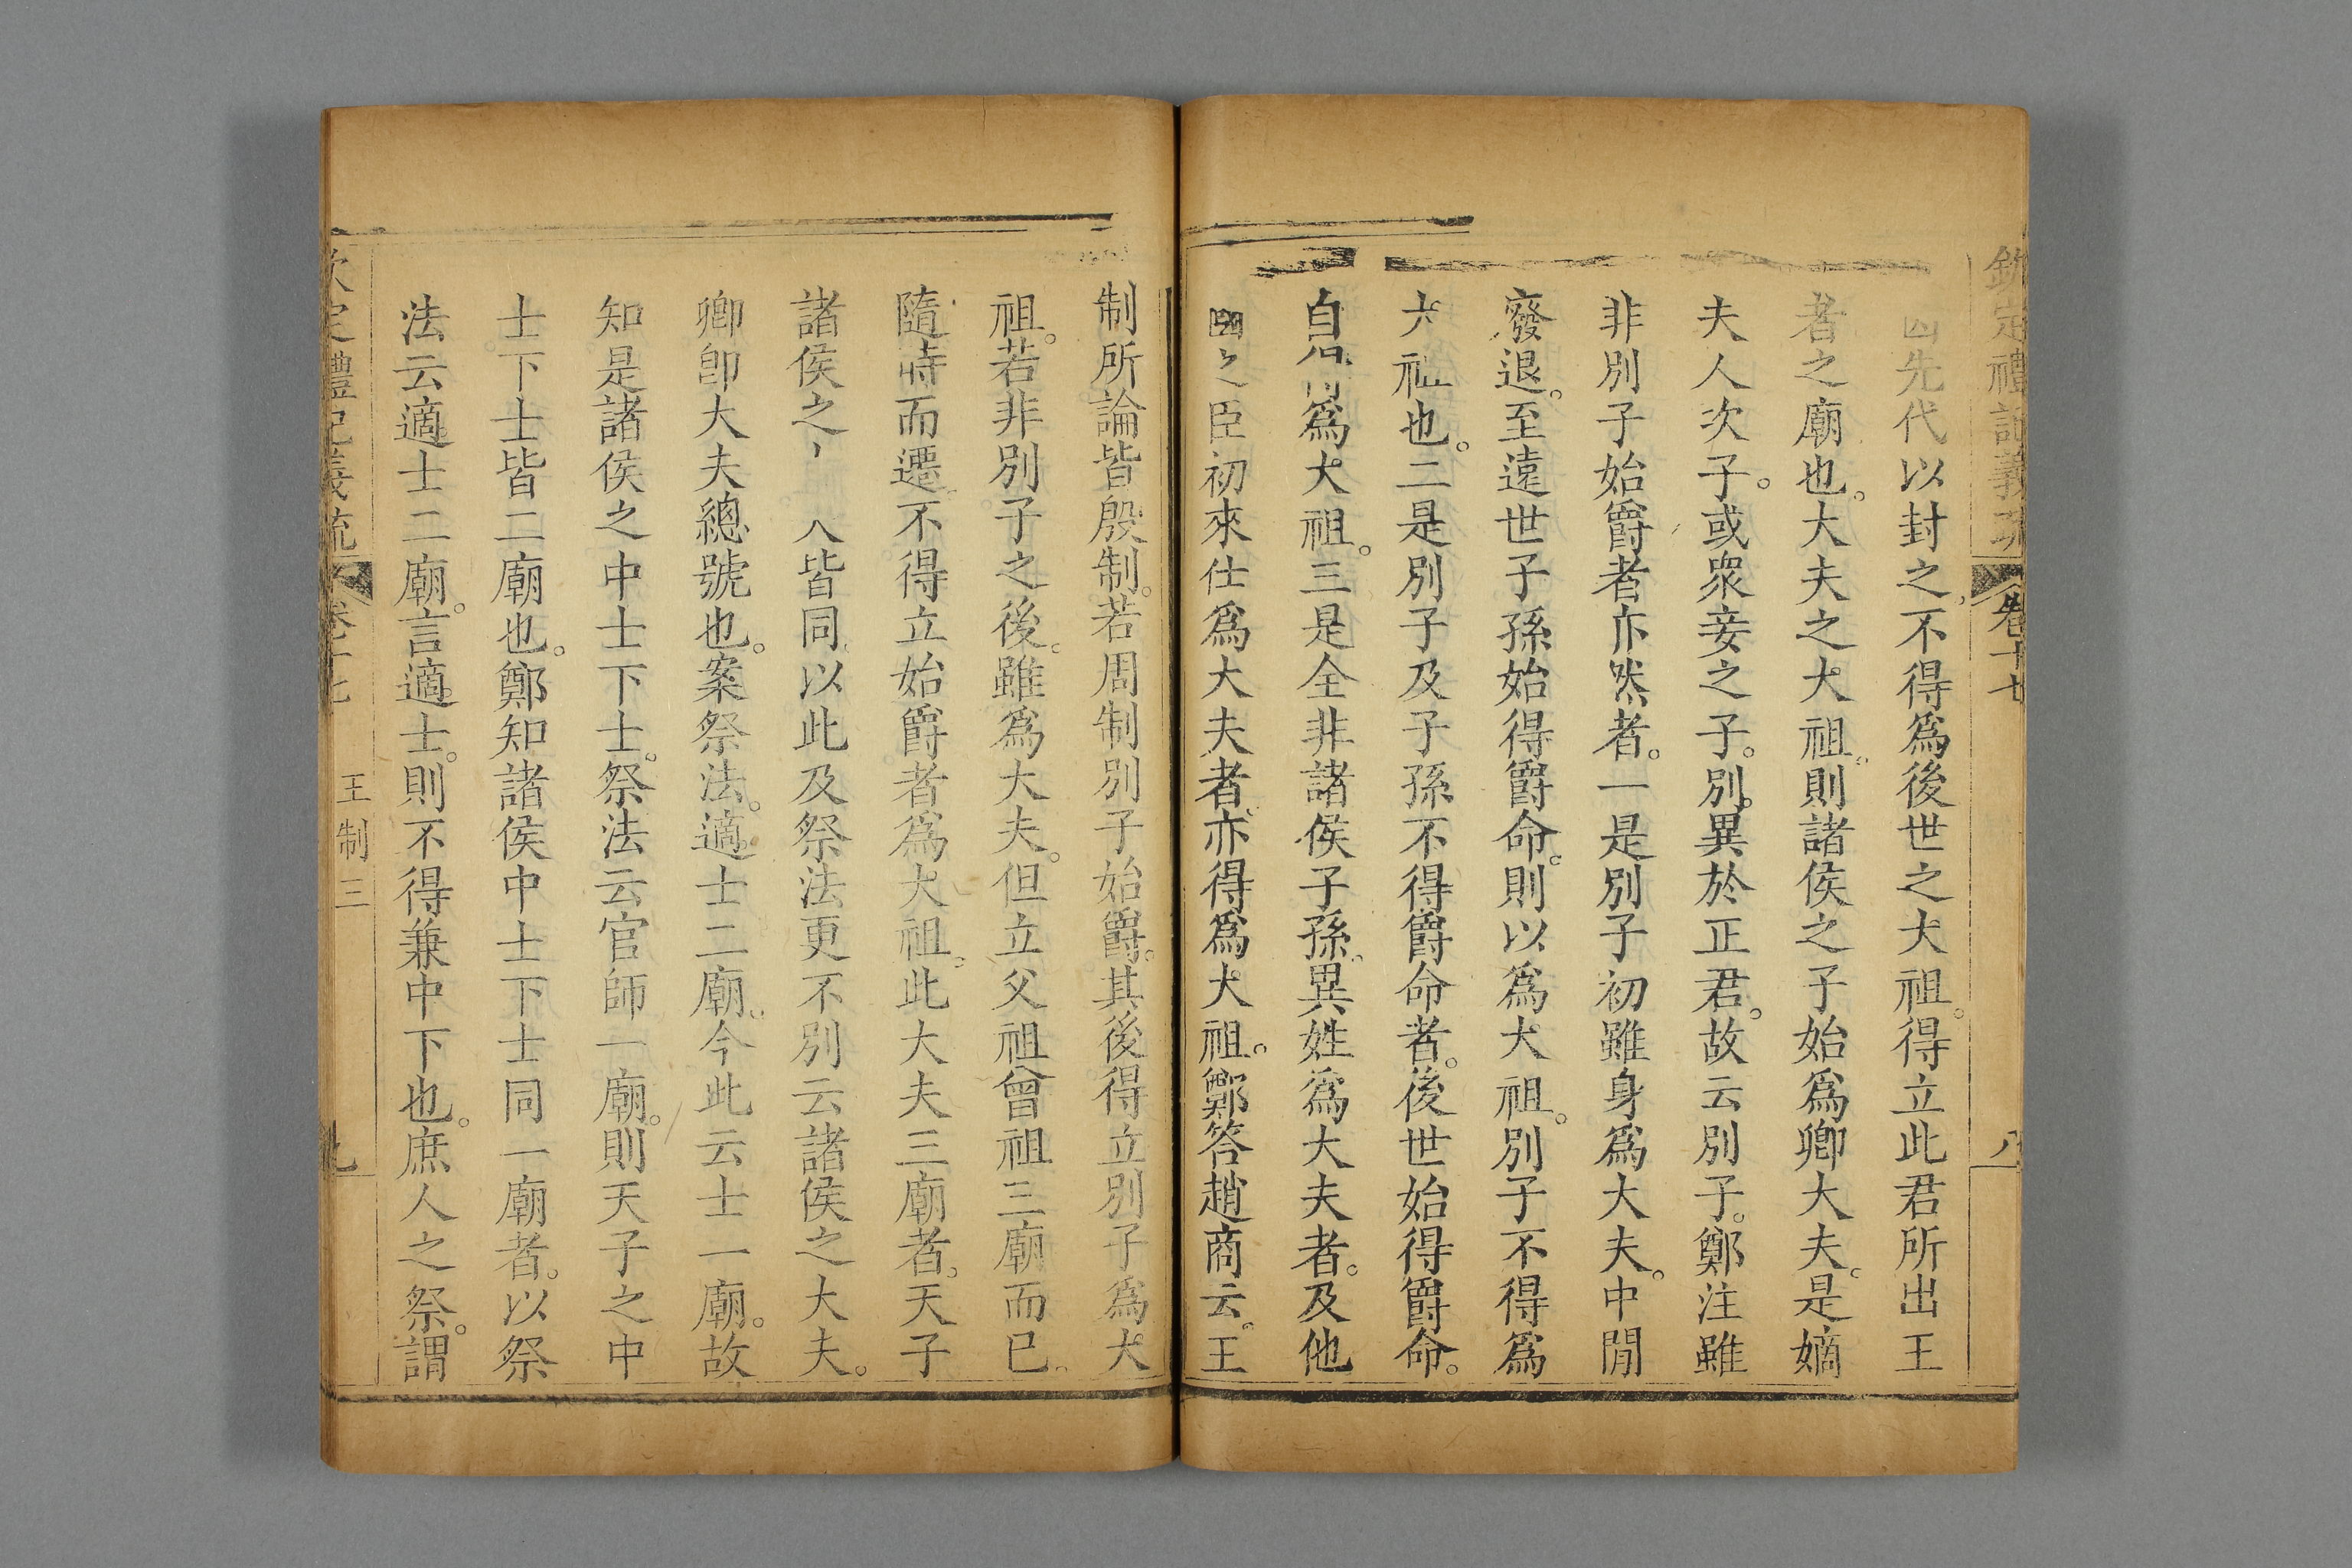 欽定禮記義疏 卷十七 八
因先代以封之不得爲後世之大祖。得立此君所出王
者之廟也。大夫之大祖。則諸侯之子始爲卿大夫。是嫡
夫人次子。或衆妾之子。別異於正君。故云別子。鄭注雖
非別子始爵者亦然者。一是別子初雖身爲大夫。中閒
廢退。至遠世子孫始得爵命。則以爲大祖。別子不得爲
大祖也。二是別子及子孫不得爵命者。後世始得爵命。
自得爲大祖。三是全非諸侯子孫。異姓爲大夫者。及他
國之臣初來仕爲大夫者。亦得爲大祖。鄭答趙商云。王
制所論皆殷制。若周制別子始爵。其後得立別子爲大
祖。若非別子之後。雖爲大夫。但立父祖曾祖三廟而已。
隨時而遷。不得立始爵者爲大祖。此大夫三廟者。天子
諸侯之 人皆同。以此及祭法更不別云諸侯之大夫。
卿卽大夫總號也。案祭法。適士二廟。今此云士一廟。故
知是諸侯之中士下士。祭法云官師一廟。則天子之中
士下士皆二廟也。鄭知諸侯中士下士同一廟者。以祭
法云適士二廟。言適士。則不得兼中下也。庶人之祭。謂
欽定禮記義疏 卷十七 王制三 九